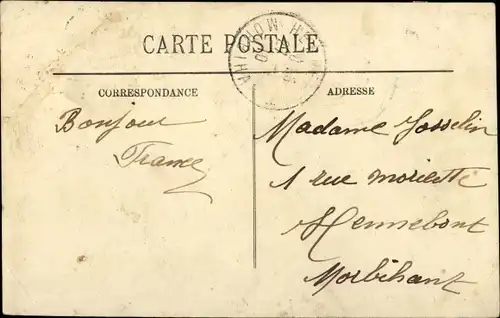 CARTE POSTALE
CORRESPONDANCE
Bonjour
France
ADRESSE
Madame Josselin
1 rue
Hennebont
Morbihant